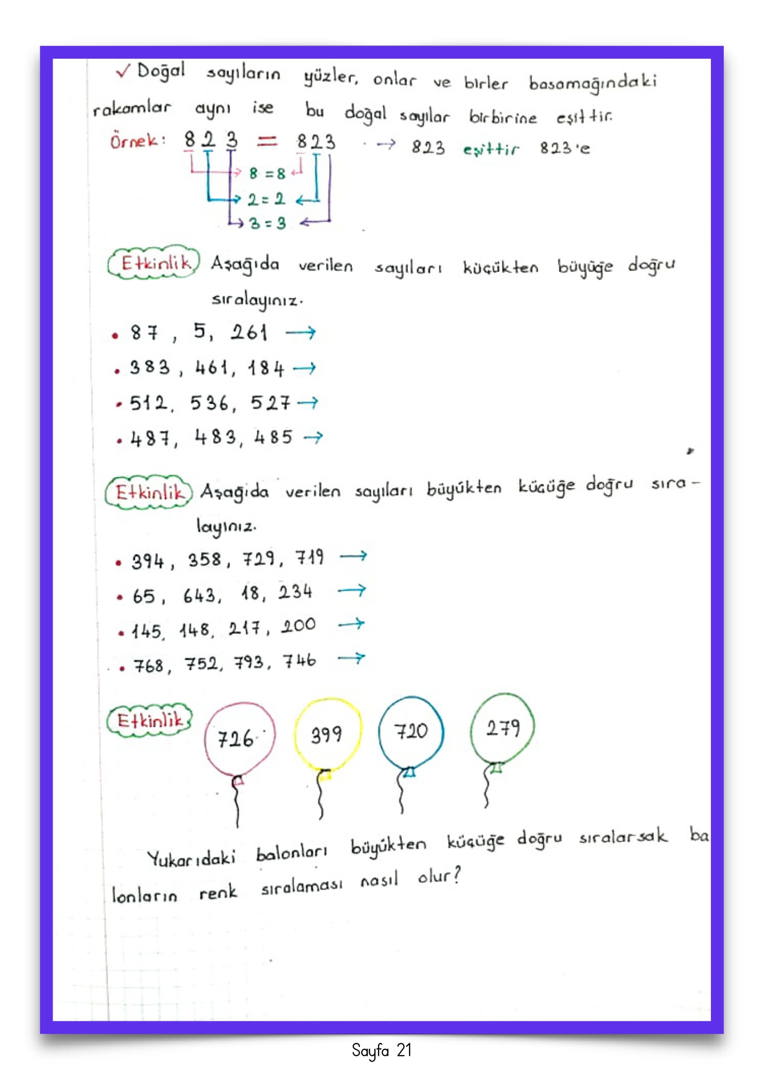 ✓ Doğal sayıların yüzler, onlar ve birler basamağındaki
rakamlar aynı ise bu doğal sayılar birbirine eşittir.
Örnek: 823 = 823 → 823 eşittir 823'e
8 = 8
2 = 2
3 = 3
Etkinlik Aşağıda verilen sayıları küçükten büyüğe doğru
sıralayınız.
• 87, 5, 261 →
• 383, 461, 184 →
• 512, 536, 527 →
• 487, 483, 485 →
Etkinlik Aşağıda verilen sayıları büyükten küçüğe doğru sıra-
layınız.
• 394, 358, 729, 719 →
• 65, 643, 18, 234 →
• 145, 148, 217, 200 →
• 768, 752, 793, 746 →
Etkinlik 726 399 720 279
Yukarıdaki balonları büyükten küçüğe doğru sıralarsak ba
lonların renk sıralaması nasıl olur?
Sayfa 21